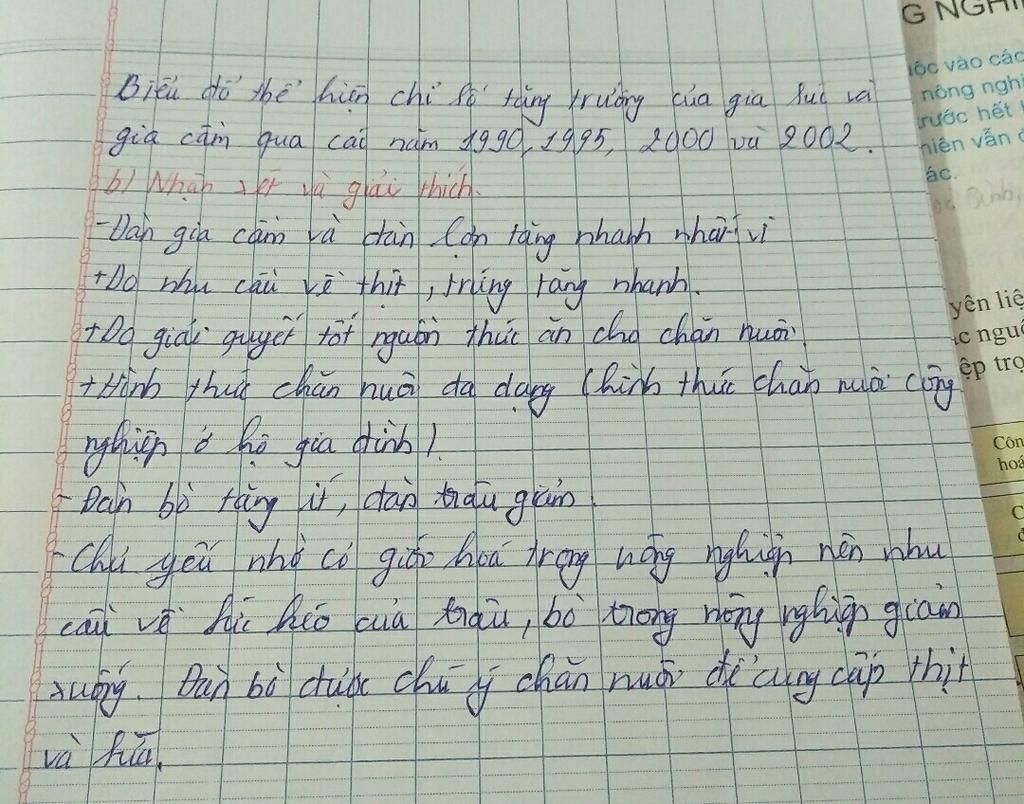 Biểu đồ thể hiện chỉ số tăng trưởng của gia súc và
gia cầm qua các năm 1990, 1995, 2000 và 2002.
b) Nhận xét và giải thích.
- Đàn gia cầm và đàn lợn tăng nhanh nhất vì
+ Do nhu cầu về thịt, trứng tăng nhanh.
+ Do giải quyết tốt nguồn thức ăn cho chăn nuôi.
+ Hình thức chăn nuôi đa dạng (hình thức chăn nuôi công
nghiệp ở hộ gia đình).
- Đàn bò tăng ít, đàn trâu giảm.
- Chủ yếu nhờ cơ giới hoá trong nông nghiệp nên nhu
cầu về sức kéo của trâu, bò trong nông nghiệp giảm
xuống. Đàn bò được chú ý chăn nuôi để cung cấp thịt
và sữa.
G NGHI
ộc vào các
nông nghi
trước hết
niên vẫn
ác.
yên liệ
c nguc
ệp trọ
Côn
hoá
C